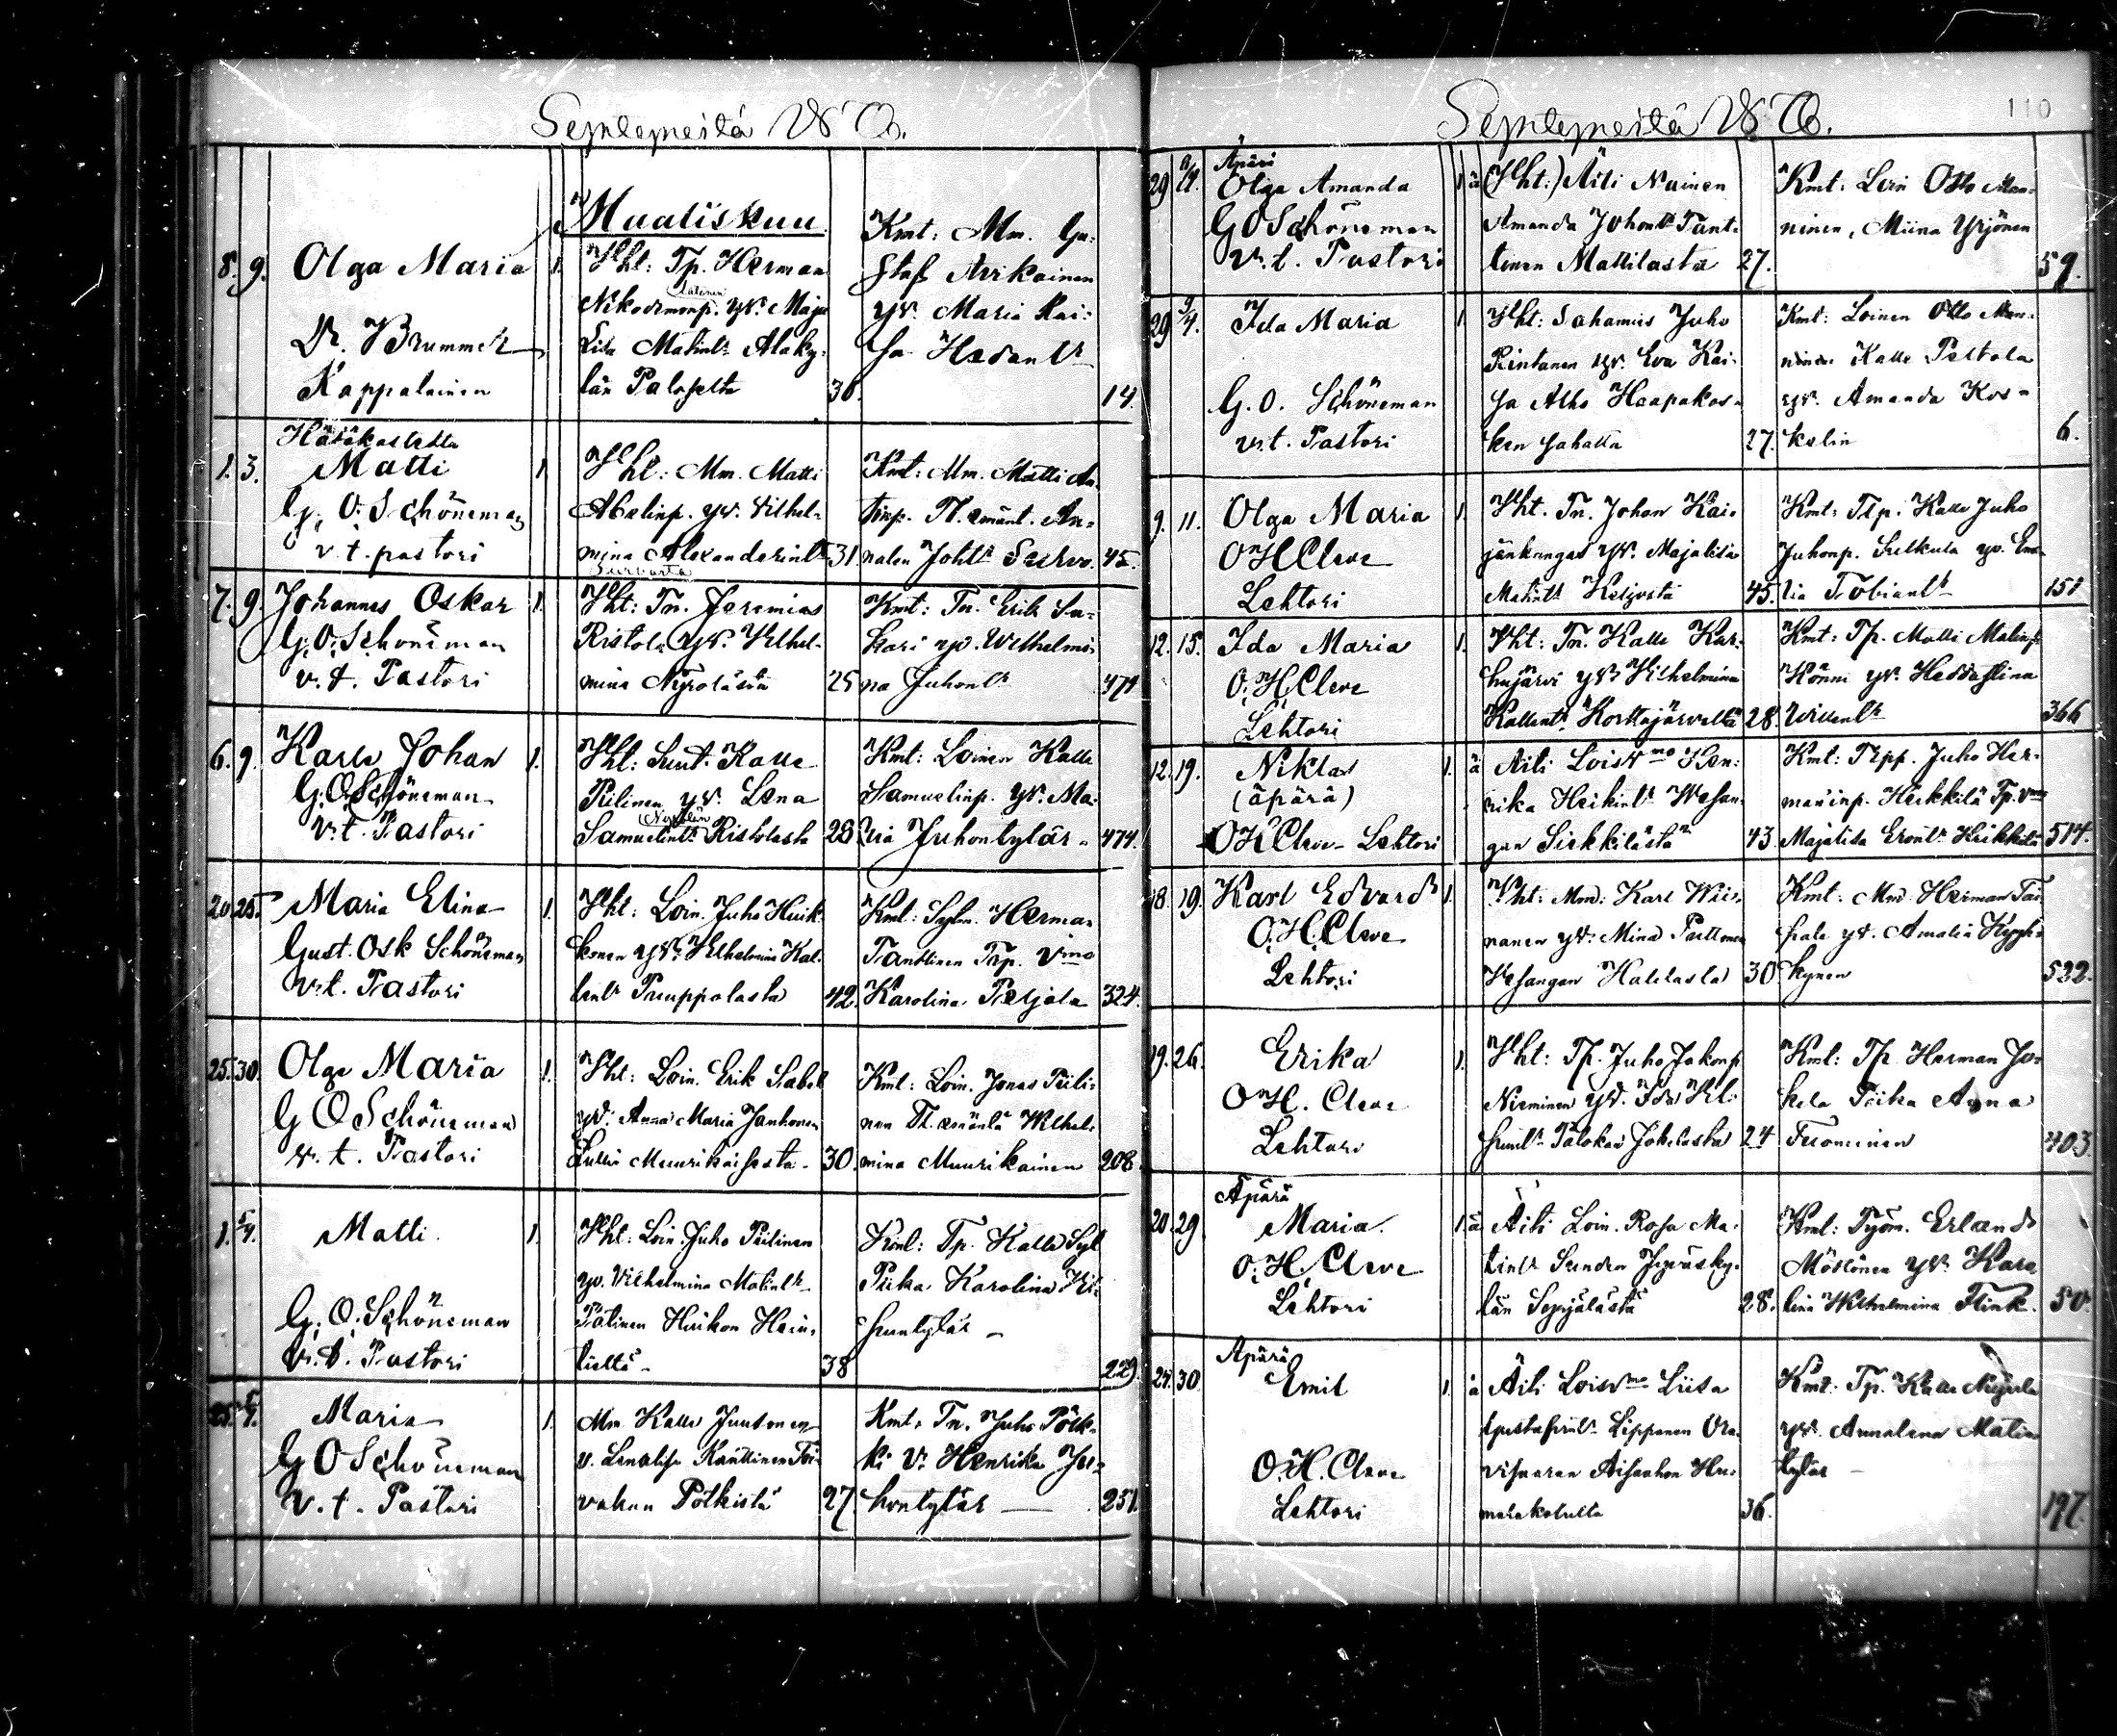 Syntyneitä W. O.
Maaliskuu
8. 9. Olga Maria 1.
D:r Brummer
Kappalainen
Vht: Tp. Herman
Nikodemonp. yv. Maja
Lisa Matint:r Alaky-
län Paloselta 36.
Kmt: Mm. Gu-
staf Avikainen
yv. Maria Kai-
sa Hedant:r
14.
Hätäkasteella
1. 3. Matti 1.
G. O. Schöneman
v. t. pastori
Vht: Mm. Matti
Abelinp. yv. Vilhel-
mina Alexanderint:r 31
Kmt: Mm. Matti An-
tinp. Th. emänt. An-
nalen Joht:r 45.
7. 9. Johannes Oskar 1.
G. O. Schöneman
v. t. Pastori
Vht: Tn. Jeremias
Ristola yv. Vilhel-
mina Nyrölästä 25
Kmt: Tn. Erik Sa-
kari yv. Wilhelmi-
na Juhont:r 474
6. 9. Karle Johan 1.
G. O. Schöneman
v. t. Pastori
Vht: Kalle
Piilinen yv. Lena
Samuelint:r Ristolasta 28
Kmt: Loinen Kalle
Samuelinp. yv. Ma-
ria Juhontytär 474.
20. 25. Maria Elina 1.
Gust. Osk Schöneman
v. t. Pastori
Vht: Loin. Juho Heik-
konen yv. Vilhelmina Kal-
lent:r Puuppolasta 42.
Kmt: Herman
Tanttinen Tp. Vmo
Karolina 324.
25. 30. Olga Maria 1.
G O Schöneman
v. t. Pastori
Vht: Loin. Erik Sabel
yv. Anna Maria Janhonen
Muurikaisesta 30.
Kmt: Loin. Jonas Piili-
nen Th. emäntä Wilhel-
mina Muurikainen 208.
1. 5/4. Matti 1.
G. O. Schöneman
v. t. Pastori
Vht: Loin. Juho Piilinen
yv. Vilhelmina Matint:r
38
Kmt: Tp. Kalle
Piika Karolina
229.
25. 5/4. Maria 1.
G O Schöneman
v. t. Pastori
Mm. Kalle Juutonen
v. Lenalisa Kanttinen Toi-
vakan Pölkistä 27.
Kmt. Tn. Juho Pölk-
ki V. Henrika Ju-
hontytär 251.
Syntyneitä W. O.
110
Äpärä
29 Olga Amanda 1 ä
G O Schöneman
v. t. Pastori
(Vht:) Äiti Nainen
Amanda Johont:r Tant-
tinen Mattilasta 27.
Kmt: Loin Otto Man-
ninen, Miina Yrjönen
59.
29 9/4. Ida Maria 1.
G. O. Schöneman
v. t. Pastori
Vht: Sahamies Juho
Rintanen yv. Eva Kai-
sa Alho Haapakos-
ken sahalta 27.
Kmt: Loinen Otto Man-
ninen Kalle Peltola
yv. Amanda Kos-
kelin 6.
9. 11. Olga Maria 1.
O H Cleve
Lehtori
Vht. Tn. Johan Käi-
yv. Majalisa
Matint:r Keljosta 45.
Kmt: Kalle Juho
Juhonp. yv. Ema-
lia Tobiant:r 151
12. 15. Ida Maria 1.
O. H. Cleve
Lehtori
Vht: Tn. Kalle Kar-
hujärvi yv. Vilhelmina
Kallent:r Korttajärveltä 28.
Kmt: Tp. Matti Matinp
Könni yv. Heddastina
Willent:r 366
12. 19. Niklas 1. ä
(äpärä)
O H Cleve - Lehtori
Äiti Loisvmo Hen-
rika Heikint:r Wesan-
gan Sirkkilästä 43.
Kmt: Juho Her-
maninp. Heikkilä Tp. Vmo
Majalisa Heikkilä 514.
18. 19. Karl Edvard 1.
O. H. Cleve
Lehtori
Vht: Mm: Karl Wii-
nanen yv: Mina
Vesangan Halilasta 30
Kmt: Mm Herman Tai-
pale yv. Amalia
532.
19. 26. Erika 1.
O H. Cleve
Lehtori
Vht: Tp. Juho Jakonp
Nieminen yv. Ida
Palokan Jokelasta 24
Kmt: Tp. Herman Jo-
kela Piika Anna
Tuominen 403.
Äpärä
20. 29 Maria. 1. ä
O. H. Cleve
Lehtori
Äiti Loin. Rosa Ma-
tint:r Sunden Jyväsky-
län Seppälästä 28.
Kmt: Työm. Erland
Möttönen yv. Karo-
lina Wilhelmina Flink. 50.
Äpärä
24. 30 Emil 1. ä
O. H. Cleve
Lehtori
Äiti Loisvmo Liisa
Lipponen Ora-
visaaren
36.
Kmt. Tp. Kalle
yv. Annalena Matin-
tytär
197.